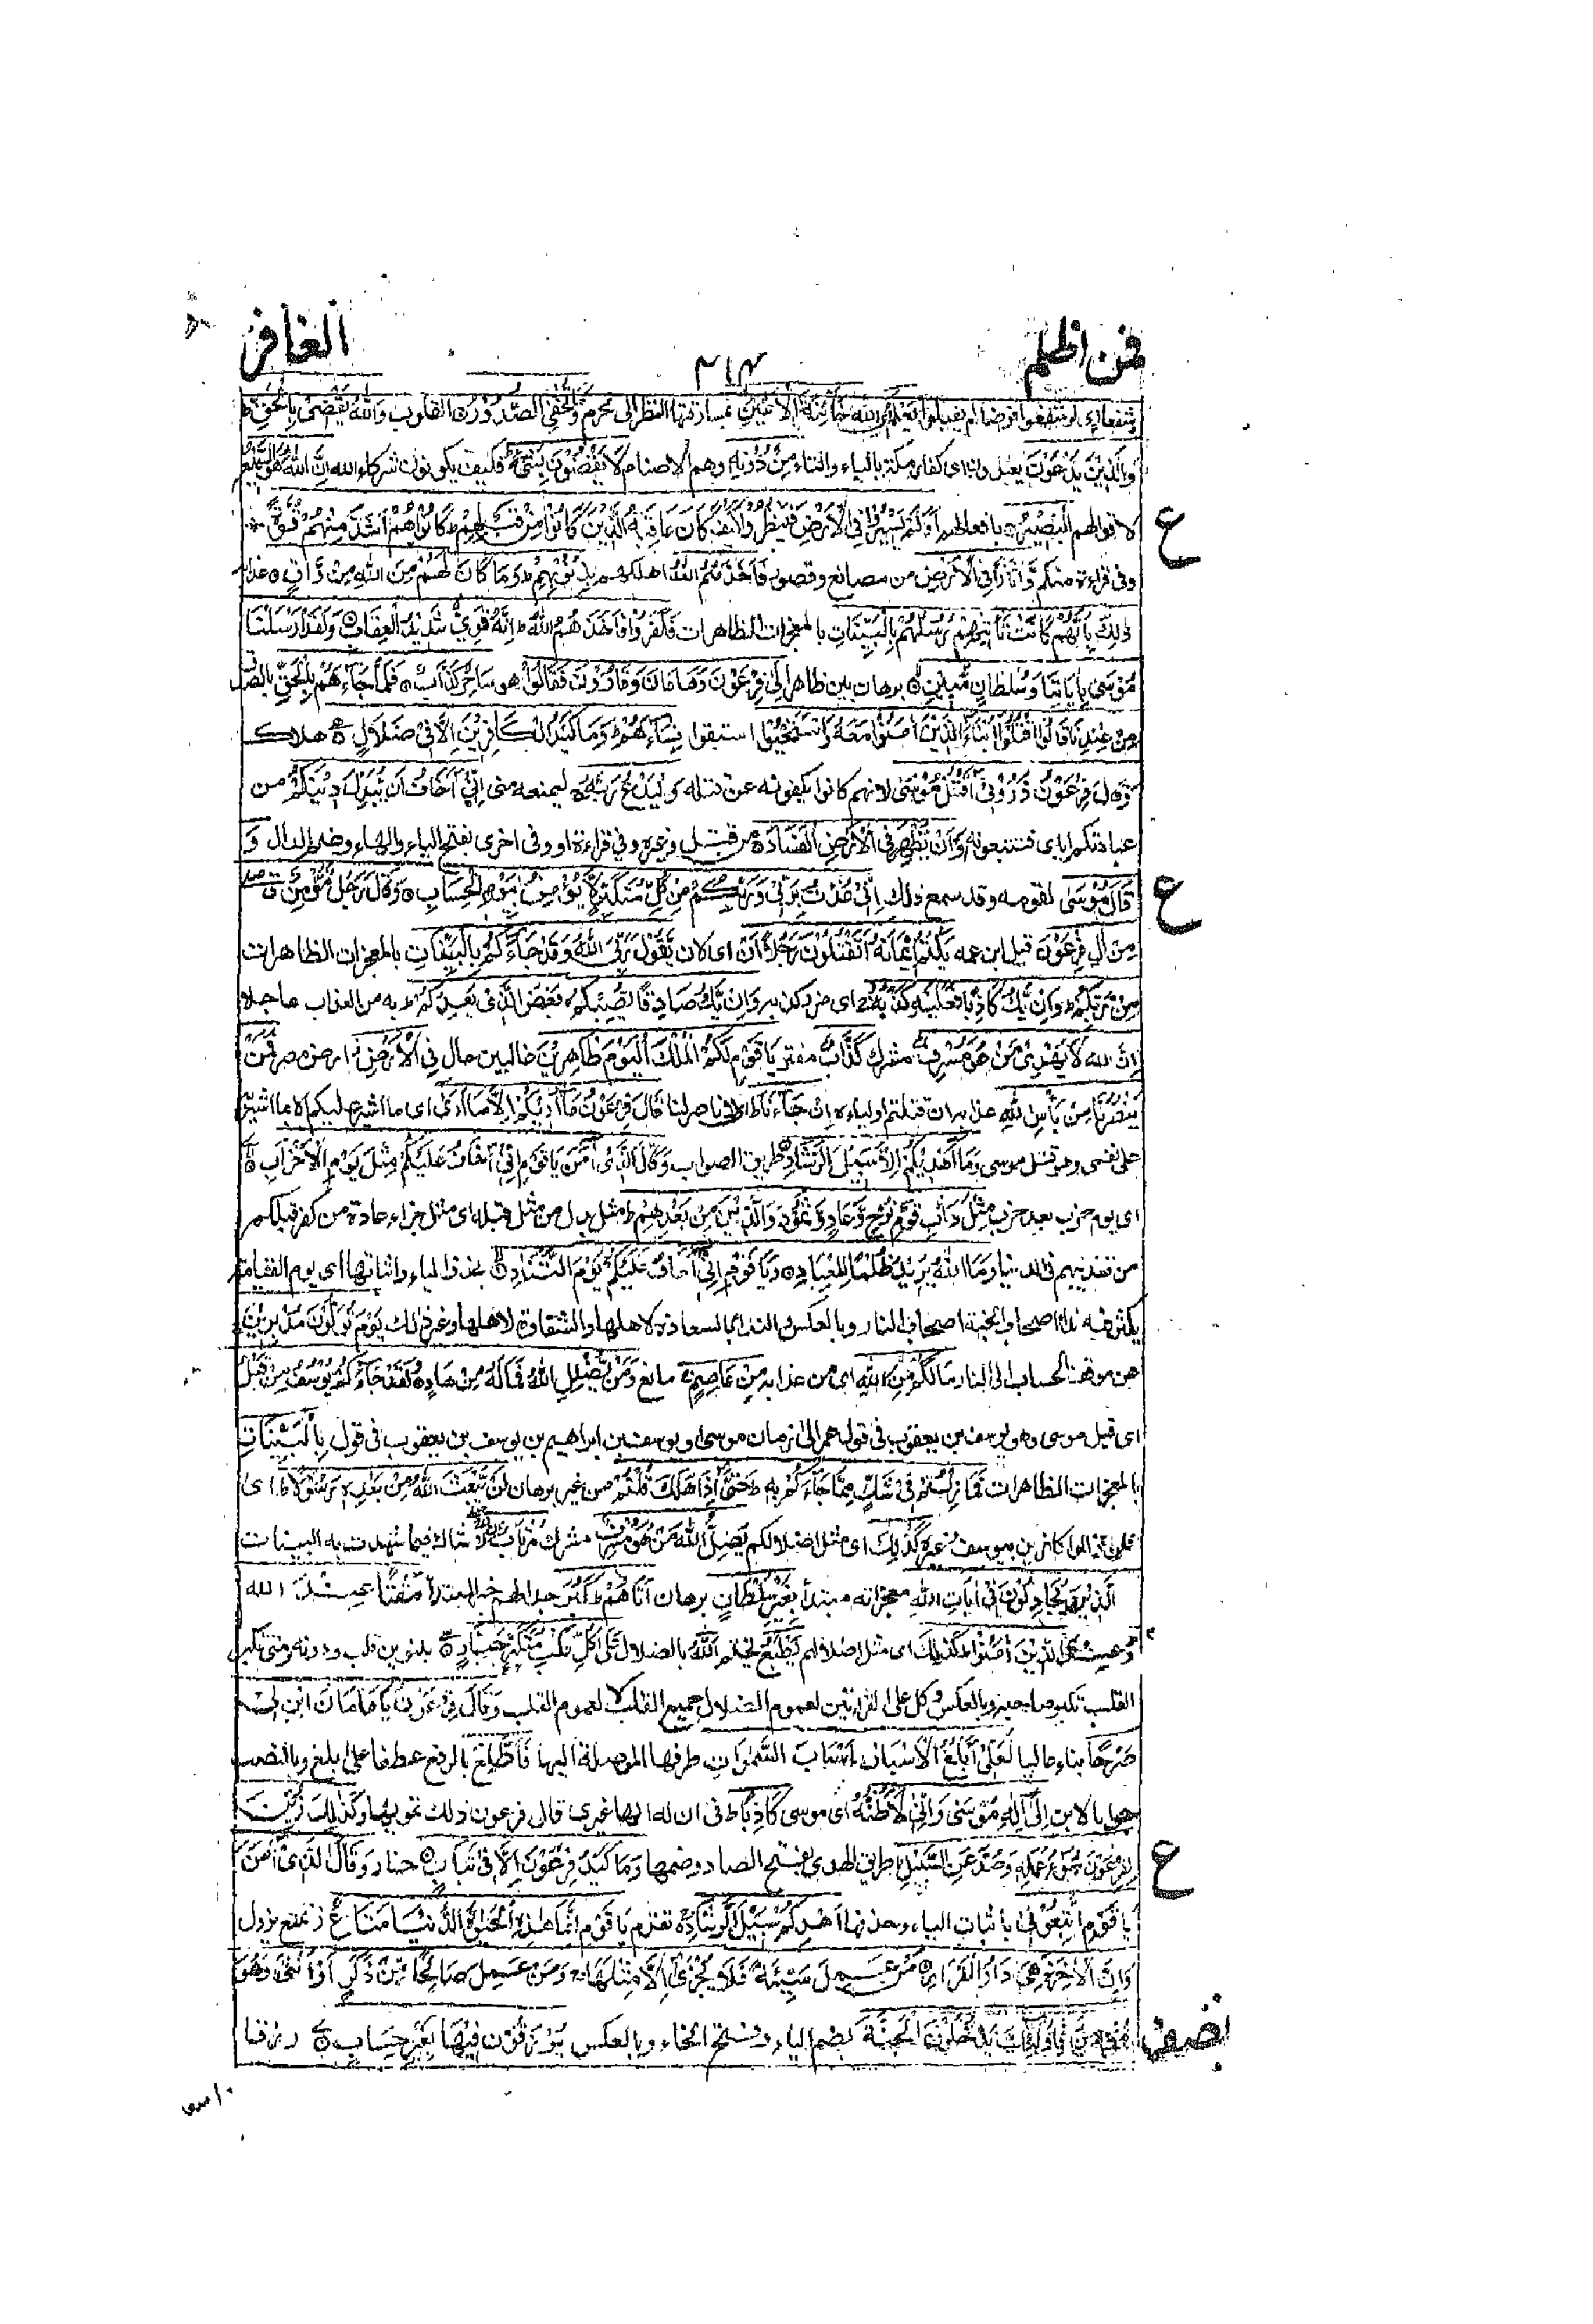 فمن اظلم
٣١٣
الغافر
شفعاء اى لو شفعوا فرضا لم يقبلوا يَعْلَمُ اى الله خَائِنَةَ الْأَعْيُنِ بمسارقتها النظر الى محرم وَمَا تُخْفِي الصُّدُوْرُ ۝ القلوب وَاللهُ يَقْضِىْ بِالْحَقِّ ط
وَالَّذِيْنَ يَدْعُوْنَ يعبدون اى كفار مكة بالياء والتاء مِنْ دُوْنِهٖ وهم الاصنام لَا يَقْضُوْنَ بِشَىْءٍ ط فكيف يكونون شركاء الله اِنَّ اللهَ هُوَ السَّمِيْعُ
لاقوالهم الْبَصِيْرُ ۝ بافعالهم اَوَلَمْ يَسِيْرُوْا فِى الْاَرْضِ فَيَنْظُرُوْا كَيْفَ كَانَ عَاقِبَةُ الَّذِيْنَ كَانُوْا مِنْ قَبْلِهِمْ ط كَانُوْا هُمْ اَشَدَّ مِنْهُمْ قُوَّةً
وفى قراءة منكم وَّاٰثَارًا فِى الْاَرْضِ من مصانع وقصور فَاَخَذَهُمُ اللهُ اهلكهم بِذُنُوْبِهِمْ ط وَمَا كَانَ لَهُمْ مِنَ اللهِ مِنْ وَّاقٍ ۝ عذابه
ذٰلِكَ بِاَنَّهُمْ كَانَتْ تَّاْتِيْهِمْ رُسُلُهُمْ بِالْبَيِّنَاتِ بالمعجزات الظاهرات فَكَفَرُوْا فَاَخَذَهُمُ اللهُ ط اِنَّهُ قَوِىٌّ شَدِيْدُ الْعِقَابِ ۝ وَلَقَدْ اَرْسَلْنَا
مُوْسٰى بِاٰيَاتِنَا وَسُلْطَانٍ مُّبِيْنٍ ۝ برهان بين ظاهر اِلٰى فِرْعَوْنَ وَهَامَانَ وَقَارُوْنَ فَقَالُوْا هو سَاحِرٌ كَذَّابٌ ۝ فَلَمَّا جَاءَهُمْ بِالْحَقِّ بالصدق
مِنْ عِنْدِنَا قَالُوا اقْتُلُوْا اَبْنَاءَ الَّذِيْنَ اٰمَنُوْا مَعَهُ وَاسْتَحْيُوْا استبقوا نِسَاءَهُمْ ط وَمَا كَيْدُ الْكَافِرِيْنَ اِلَّا فِىْ ضَلَالٍ ۝ هلاك
وَقَالَ فِرْعَوْنُ ذَرُوْنِىْ اَقْتُلْ مُوْسٰى لانهم كانوا يكفونه عن قتله وَلْيَدْعُ رَبَّهُ ج ليمنعه منى اِنِّىْ اَخَافُ اَنْ يُّبَدِّلَ دِيْنَكُمْ من
عبادتكم اياى فتتبعونه وَاَنْ يُّظْهِرَ فِى الْاَرْضِ الْفَسَادَ ۝ من قتل وغيره وفى قراءة او وفى اخرى بفتح الياء والهاء وضم الدال وَ
قَالَ مُوْسٰى لقومه وقد سمع ذلك اِنِّىْ عُذْتُ بِرَبِّىْ وَرَبِّكُمْ مِنْ كُلِّ مُتَكَبِّرٍ لَّا يُؤْمِنُ بِيَوْمِ الْحِسَابِ ۝ وَقَالَ رَجُلٌ مُّؤْمِنٌ ق
مِنْ اٰلِ فِرْعَوْنَ قيل ابن عمه يَكْتُمُ اِيْمَانَهُ اَتَقْتُلُوْنَ رَجُلًا اَنْ اى لان يَّقُوْلَ رَبِّىَ اللهُ وَقَدْ جَاءَكُمْ بِالْبَيِّنَاتِ بالمعجزات الظاهرات
مِنْ رَّبِّكُمْ ط وَاِنْ يَّكُ كَاذِبًا فَعَلَيْهِ كَذِبُهُ ج اى ضرر كذبه وَاِنْ يَّكُ صَادِقًا يُّصِبْكُمْ بَعْضُ الَّذِىْ يَعِدُكُمْ ط به من العذاب عاجلا
اِنَّ اللهَ لَا يَهْدِىْ مَنْ هُوَ مُسْرِفٌ مشرك كَذَّابٌ مفتر يَا قَوْمِ لَكُمُ الْمُلْكُ الْيَوْمَ ظَاهِرِيْنَ غالبين حال فِى الْاَرْضِ ارض مصر فَمَنْ
يَنْصُرُنَا مِنْ بَأْسِ اللهِ عذابه ان قتلتم اولياءه اِنْ جَاءَنَا ط اى لا ناصر لنا قَالَ فِرْعَوْنُ مَا اُرِيْكُمْ اِلَّا مَا اَرٰى اى ما اشير عليكم الا بما اشير
على نفسى وهو قتل موسى وَمَا اَهْدِيْكُمْ اِلَّا سَبِيْلَ الرَّشَادِ ۝ طريق الصواب وَقَالَ الَّذِىْ اٰمَنَ يَا قَوْمِ اِنِّىْ اَخَافُ عَلَيْكُمْ مِثْلَ يَوْمِ الْاَحْزَابِ ۝
اى يوم حزب بعد حزب مِثْلَ دَاْبِ قَوْمِ نُوْحٍ وَّعَادٍ وَّثَمُوْدَ وَالَّذِيْنَ مِنْ بَعْدِهِمْ ط مثل بدل من مثل قبله اى مثل جزاء عادة من كفر قبلكم
من تعذيبهم فى الدنيا وَمَا اللهُ يُرِيْدُ ظُلْمًا لِّلْعِبَادِ ۝ وَيَا قَوْمِ اِنِّىْ اَخَافُ عَلَيْكُمْ يَوْمَ التَّنَادِ ۝ بحذف الياء واثباتها اى يوم القيامة
يكثر فيه نداء اصحاب الجنة اصحاب النار وبالعكس والنداء بالسعادة لاهلها والشقاوة لاهلها وغير ذلك يَوْمَ تُوَلُّوْنَ مُدْبِرِيْنَ ج
عن موقف الحساب الى النار مَالَكُمْ مِّنَ اللهِ اى من عذابه مِنْ عَاصِمٍ ج مانع وَمَنْ يُّضْلِلِ اللهُ فَمَا لَهُ مِنْ هَادٍ ۝ وَلَقَدْ جَاءَكُمْ يُوْسُفُ مِنْ قَبْلُ
اى قبل موسى وهو يوسف بن يعقوب فى قول عمر الى زمان موسى او يوسف بن ابراهيم بن يوسف بن يعقوب فى قول بِالْبَيِّنَاتِ
بالمعجزات الظاهرات فَمَا زِلْتُمْ فِىْ شَكٍّ مِّمَّا جَاءَكُمْ بِهٖ ط حَتّٰى اِذَا هَلَكَ قُلْتُمْ من غير برهان لَنْ يَّبْعَثَ اللهُ مِنْ بَعْدِهٖ رَسُوْلًا ط اى
فلن تزالوا كافرين بيوسف وغيره كَذٰلِكَ اى مثل اضلالكم يُضِلُّ اللهُ مَنْ هُوَ مُسْرِفٌ مشرك مُّرْتَابٌ شاك فيما شهدت به البينات
الَّذِيْنَ يُجَادِلُوْنَ فِىْ اٰيَاتِ اللهِ معجزاته مبتدأ بِغَيْرِ سُلْطَانٍ برهان اَتَاهُمْ ط كَبُرَ جدالهم خبر المبتدأ مَقْتًا عِنْدَ اللهِ
وَعِنْدَ الَّذِيْنَ اٰمَنُوْا ط كَذٰلِكَ اى مثل اضلالهم يَطْبَعُ يختم اللهُ بالضلال عَلٰى كُلِّ قَلْبِ مُتَكَبِّرٍ جَبَّارٍ ۝ بتنوين قلب ودونه ومتى تكبر
القلب تكبر صاحبه وبالعكس وكل على القراءتين لعموم الضلال جميع القلب لا لعموم القلب وَقَالَ فِرْعَوْنُ يَا هَامَانُ ابْنِ لِىْ
صَرْحًا بناء عاليا لَعَلِّىْ اَبْلُغُ الْاَسْبَابَ اَسْبَابَ السَّمٰوَاتِ طرقها الموصلة اليها فَاَطَّلِعُ بالرفع عطفا على ابلغ وبالنصب
جوابا لابن اِلٰى اِلٰهِ مُوْسٰى وَاِنِّىْ لَاَظُنُّهُ اى موسى كَاذِبًا ط فى ان له الها غيرى قال فرعون ذلك تمويها وَكَذٰلِكَ زُيِّنَ
لِفِرْعَوْنَ سُوْءُ عَمَلِهٖ وَصُدَّ عَنِ السَّبِيْلِ ط طريق الهدى بفتح الصاد وضمها وَمَا كَيْدُ فِرْعَوْنَ اِلَّا فِىْ تَبَابٍ ۝ خسار وَقَالَ الَّذِىْ اٰمَنَ
يَا قَوْمِ اتَّبِعُوْنِ باثبات الياء وحذفها اَهْدِكُمْ سَبِيْلَ الرَّشَادِ ۝ تقدم يَا قَوْمِ اِنَّمَا هٰذِهِ الْحَيٰوةُ الدُّنْيَا مَتَاعٌ ز تمتع يزول
وَاِنَّ الْاٰخِرَةَ هِىَ دَارُ الْقَرَارِ ۝ مَنْ عَمِلَ سَيِّئَةً فَلَا يُجْزٰى اِلَّا مِثْلَهَا ج وَمَنْ عَمِلَ صَالِحًا مِّنْ ذَكَرٍ اَوْ اُنْثٰى وَهُوَ
مُؤْمِنٌ فَاُولٰئِكَ يَدْخُلُوْنَ الْجَنَّةَ بضم الياء وفتح الخاء وبالعكس يُرْزَقُوْنَ فِيْهَا بِغَيْرِ حِسَابٍ ۝ رزقا
ع
ع
ع
نصف